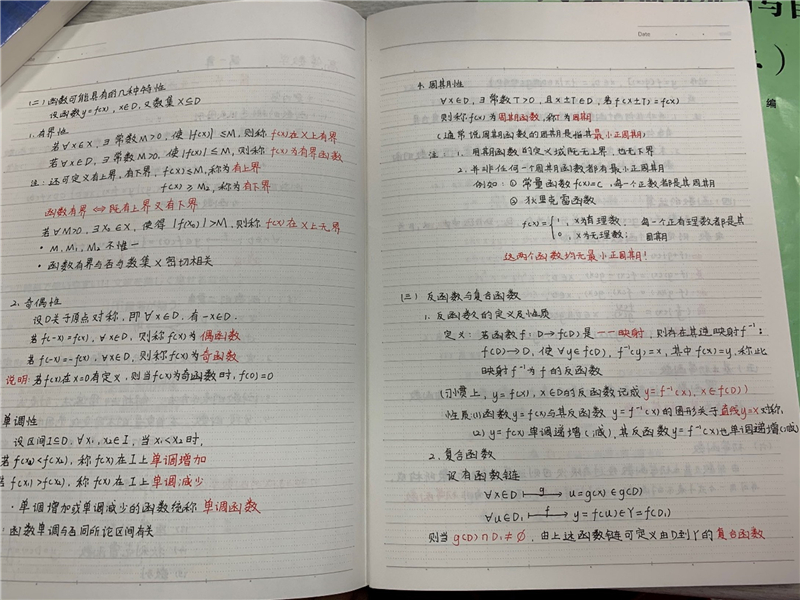 (二) 函数可能具有的几种特性
设函数y=f(x), x∈D, 又数集X⊆D
1. 有界性
若∀x∈X, ∃常数M>0, 使|f(x)|≤M, 则称f(x)在X上有界
若∀x∈D, ∃常数M>0, 使|f(x)|≤M, 则称f(x)为有界函数
注: 还可定义有上界, 有下界, f(x)≤M, 称为有上界
f(x)≥M₂, 称为有下界
函数有界⇔既有上界又有下界
若∀M>0, ∃x₀∈X, 使得|f(x₀)|>M, 则称f(x)在X上无界
• M, M₁, M₂不惟一
• 函数有界与否与数集X密切相关
2. 奇偶性
设D关于原点对称, 即∀x∈D, 有-x∈D.
若f(-x)=f(x), ∀x∈D, 则称f(x)为偶函数
若f(-x)=-f(x), ∀x∈D, 则称f(x)为奇函数
说明: 若f(x)在x=0有定义, 则当f(x)为奇函数时, f(0)=0
单调性
设区间I⊆D, ∀x₁, x₂∈I, 当x₁<x₂时,
若f(x₁)<f(x₂), 称f(x)在I上单调增加
若f(x₁)>f(x₂), 称f(x)在I上单调减少
• 单调增加或单调减少的函数统称单调函数
函数单调与否同所论区间有关
Date
4. 周期性
∀x∈D, ∃常数T>0, 且x±T∈D, 若f(x±T)=f(x)
则称f(x)为周期函数, 称T为周期
(通常说周期函数的周期是指其最小正周期)
注 1. 周期函数的定义域既无上界, 也无下界
2. 并非任何一个周期函数都有最小正周期
例如: ① 常量函数f(x)=C, 每一个正数都是其周期
② 狄里克雷函数
f(x)={1, x为有理数; 每一个正有理数都是其
0, x为无理数; 周期
这两个函数均无最小正周期!
(三) 反函数与复合函数
1. 反函数的定义及性质
定义: 若函数f: D→f(D)是一一映射, 则存在其逆映射f⁻¹:
f(D)→D, 使∀y∈f(D), f⁻¹(y)=x, 其中f(x)=y, 称此
映射f⁻¹为f的反函数
(习惯上, y=f(x), x∈D的反函数记成y=f⁻¹(x), x∈f(D))
性质: (1) 函数y=f(x)与其反函数y=f⁻¹(x)的图形关于直线y=x对称.
(2) y=f(x)单调递增(减), 其反函数y=f⁻¹(x)也单调递增(减)
2. 复合函数
设有函数链
∀x∈D ⟼g u=g(x)∈g(D)
∀u∈D₁ ⟼f y=f(u)∈Y=f(D₁)
则当g(D)∩D₁≠∅, 由上述函数链可定义由D到Y的复合函数
编